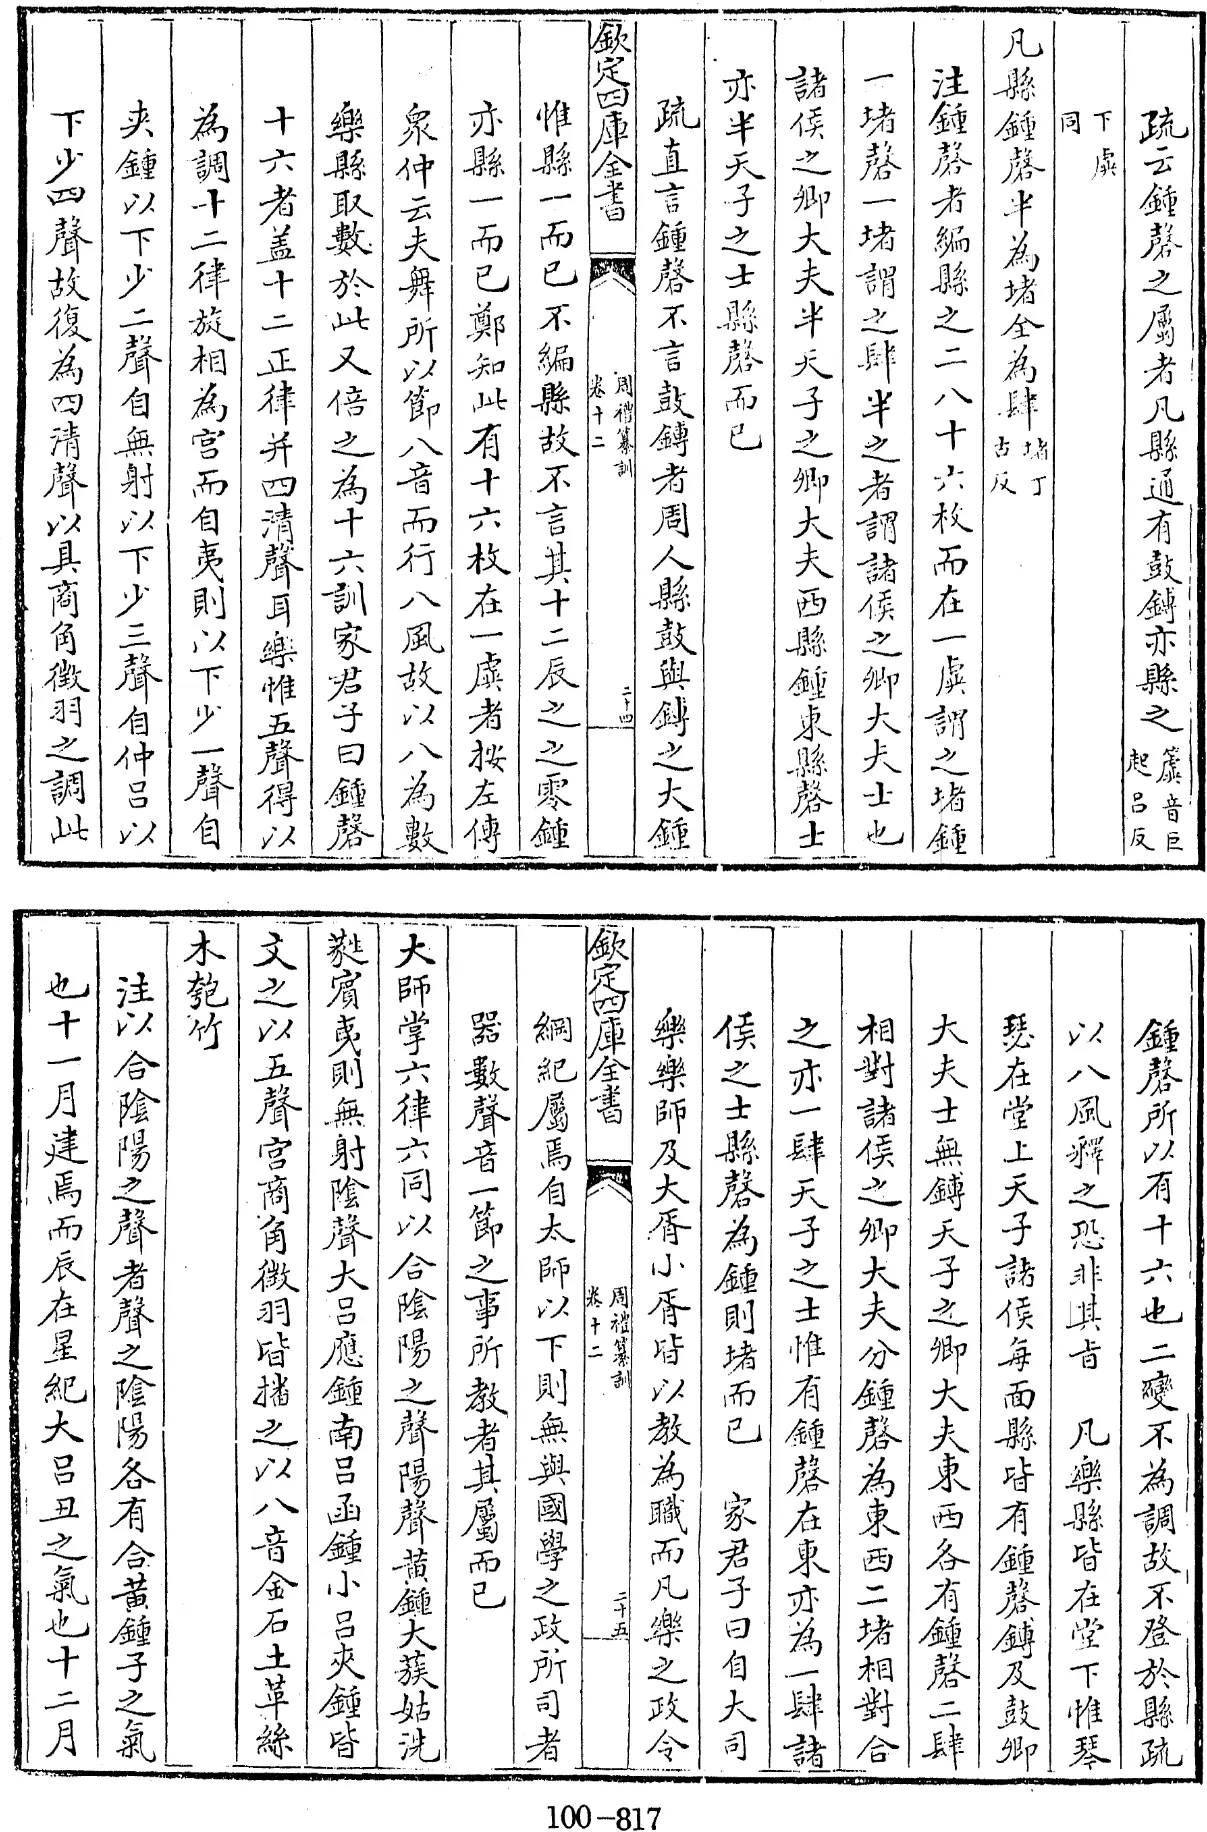 疏云鍾磬之屬者凡縣通有鼓鎛亦縣之簴音巨起呂反
下虡同
凡縣鍾磬半為堵全為肆堵丁古反
注鍾磬者編縣之二八十六枚而在一虡謂之堵鍾
一堵磬一堵謂之肆半之者謂諸侯之卿大夫士也
諸侯之卿大夫半天子之卿大夫西縣鍾東縣磬士
亦半天子之士縣磬而已
疏直言鍾磬不言鼓鎛者周人縣鼓與鎛之大鍾
欽定四庫全書
周禮纂訓
卷十二
二十四
惟縣一而已不編縣故不言其十二辰之之零鍾
亦縣一而已鄭知此有十六枚在一虡者按左傳
衆仲云夫舞所以節八音而行八風故以八為數
樂縣取數於此又倍之為十六訓家君子曰鍾磬
十六者盖十二正律并四清聲耳樂惟五聲得以
為調十二律旋相為宮而自夷則以下少一聲自
夾鍾以下少二聲自無射以下少三聲自仲呂以
下少四聲故復為四清聲以具商角徵羽之調此
鍾磬所以有十六也二變不為調故不登於縣疏
以八風釋之恐非其旨　凡樂縣皆在堂下惟琴
瑟在堂上天子諸侯每面縣皆有鍾磬鎛及鼓卿
大夫士無鎛天子之卿大夫東西各有鍾磬二肆
相對諸侯之卿大夫分鍾磬為東西二堵相對合
之亦一肆天子之士惟有鍾磬在東亦為一肆諸
侯之士縣磬為鍾則堵而已　家君子曰自大司
樂樂師及大胥小胥皆以教為職而凡樂之政令
欽定四庫全書
周禮纂訓
卷十二
二十五
綱紀屬焉自太師以下則無與國學之政所司者
器數聲音一節之事所教者其屬而已
大師掌六律六同以合隂陽之聲陽聲黃鍾大蔟姑洗
蕤賓夷則無射隂聲大呂應鍾南呂函鍾小呂夾鍾皆
文之以五聲宮商角徵羽皆播之以八音金石土革絲
木匏竹
注以合隂陽之聲者聲之隂陽各有合黃鍾子之氣
也十一月建焉而辰在星紀大呂丑之氣也十二月
100-817